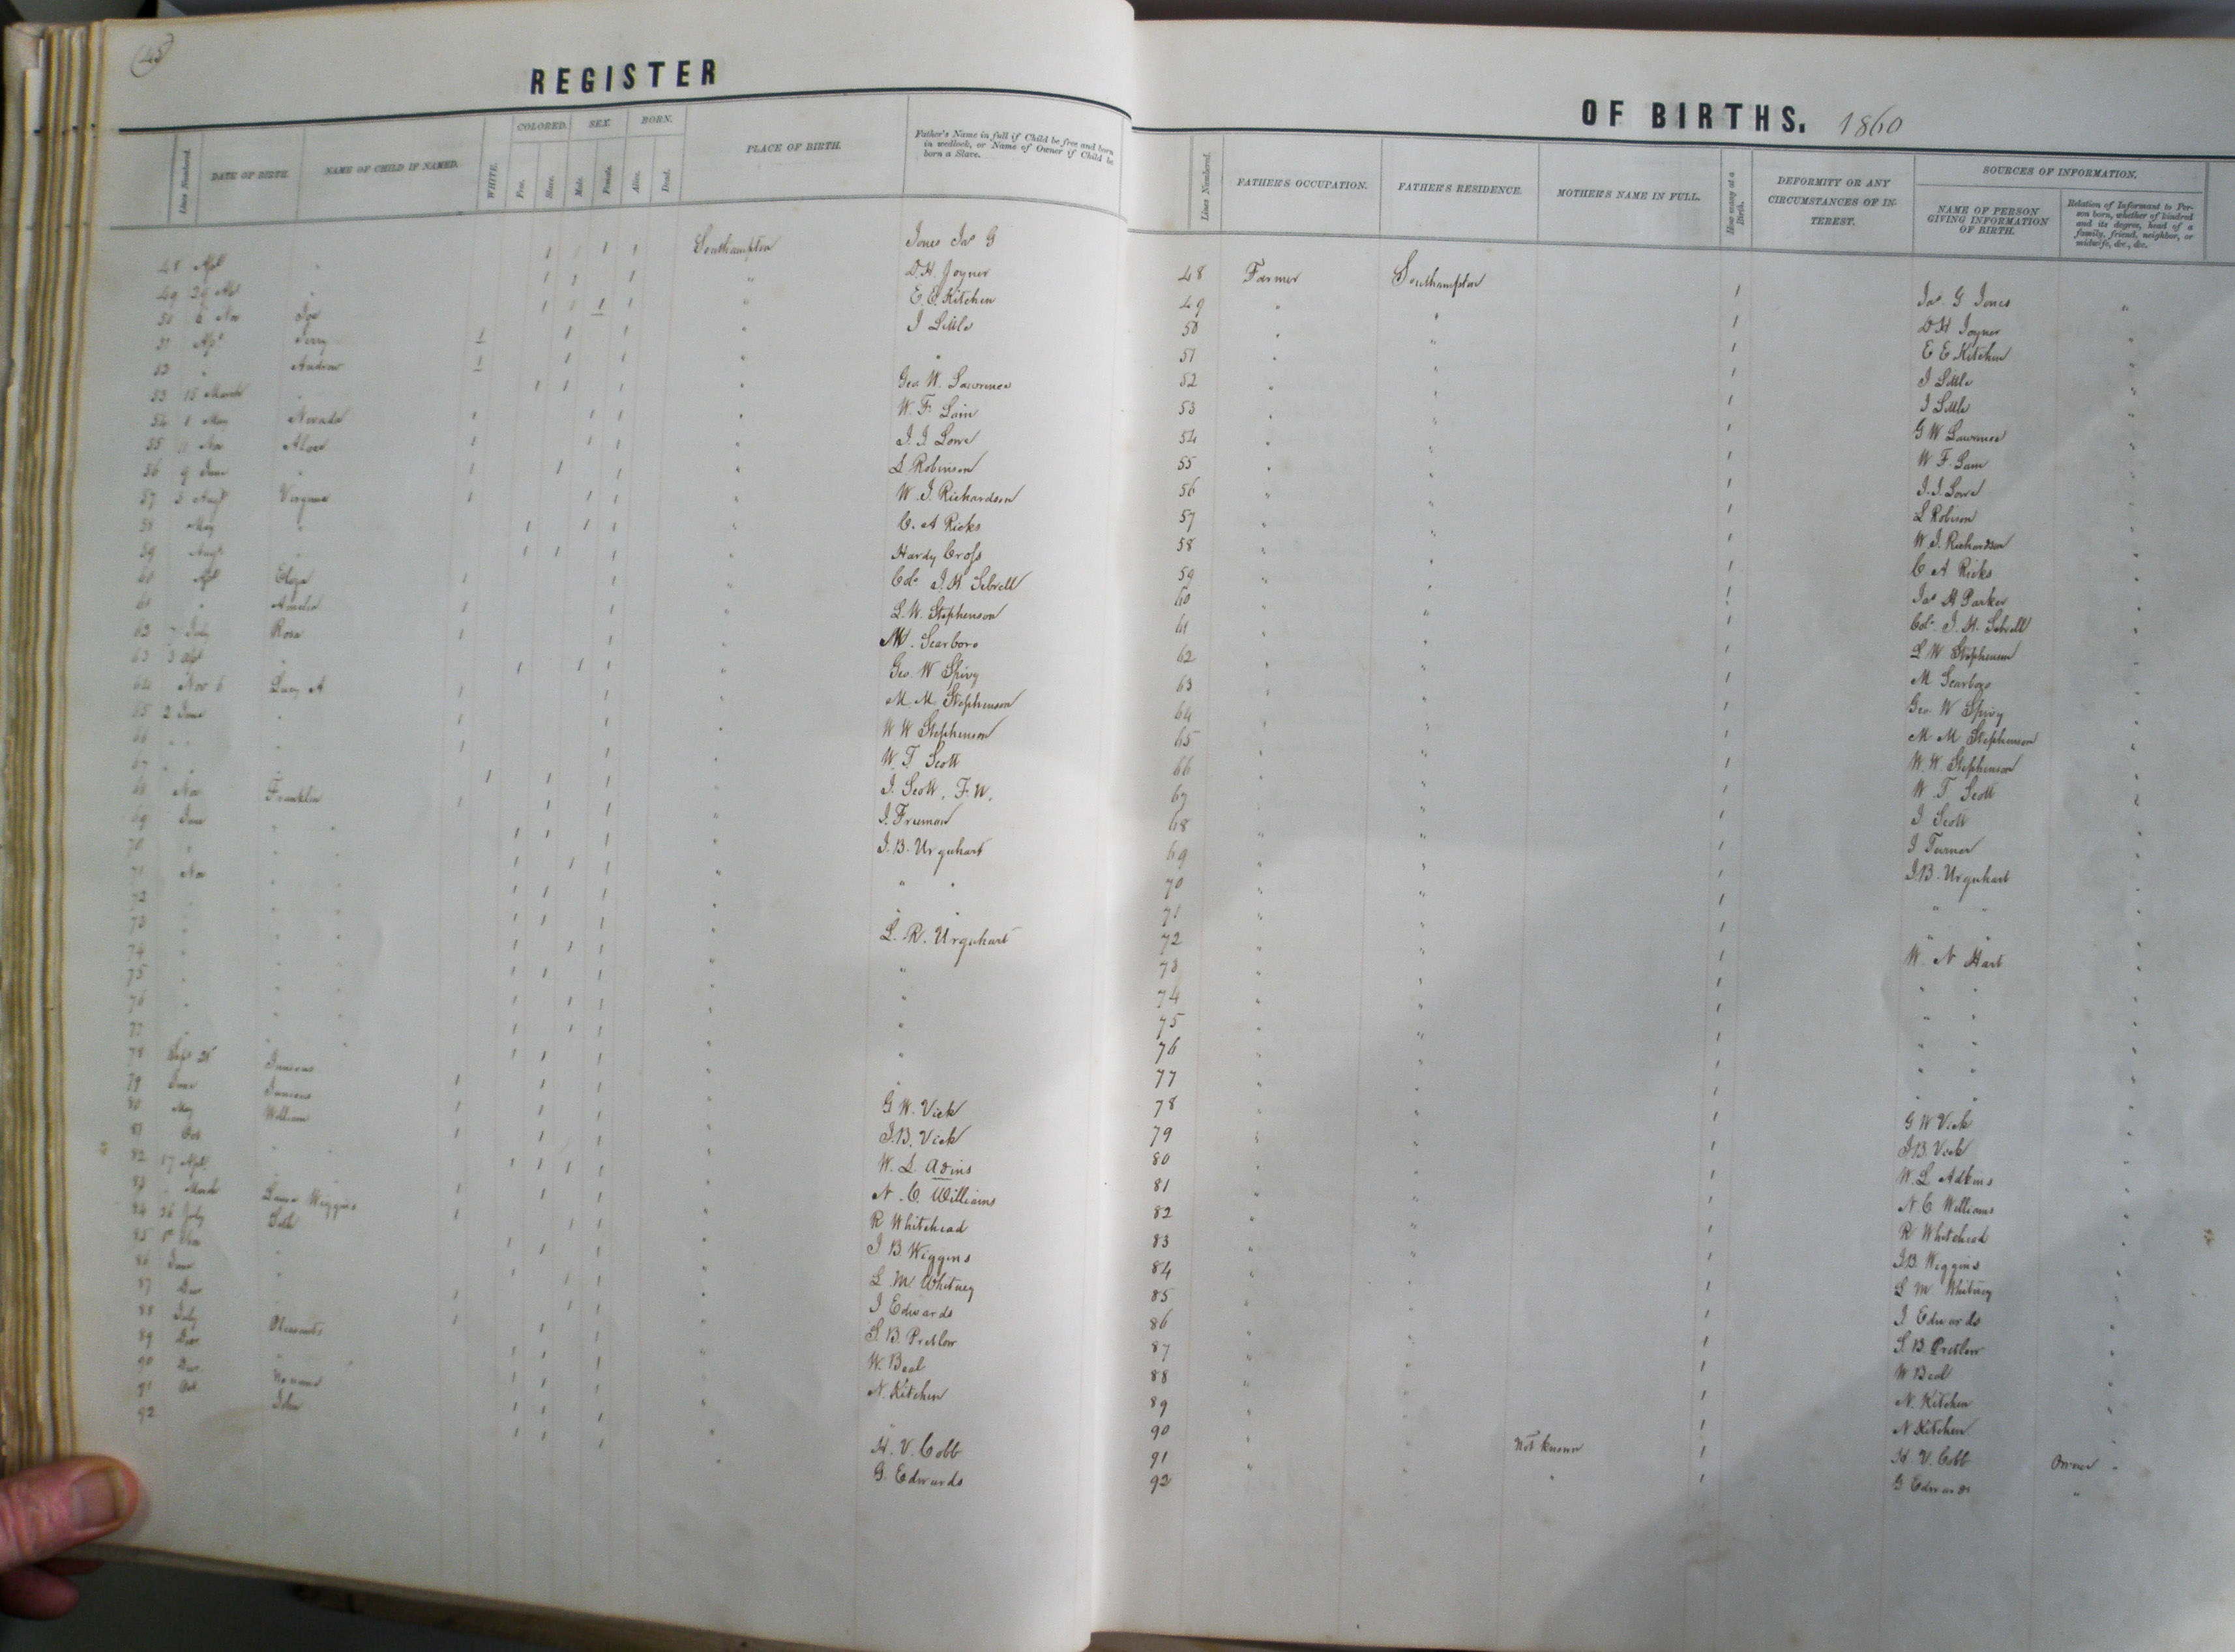 45
REGISTER
Lines Numbered. DATE OF BIRTH. NAME OF CHILD IF NAMED. WHITE. COLORED. Free. Slave. SEX. Male. Female. BORN. Alive. Dead. PLACE OF BIRTH. Father's Name in full if Child be free and born in wedlock, or Name of Owner if Child be born a Slave.
48 Apl " 1 1 1 Southampton Jones Jas G
49 29 " 1 1 1 " D.H. Joyner
50 6 Nov Joe 1 1 1 " E.E. Kitchen
51 Apl 1 1 1 " J Little
52 " Andrew 1 1 1 " "
53 15 March " 1 1 1 " Geo W. Lawrence
54 1 May 1 1 1 " W. F. Lain
55 Nov 1 1 1 " J. J. Lowe
56 9 June " 1 1 1 " L Robinson
57 5 Augt Virginia 1 1 1 " W. J. Richardson
58 May " 1 1 1 " C. A Ricks
59 Augt " 1 1 1 " Hardy Cross
60 Apl 1 1 " Col. J. H Sebrell
61 " 1 1 " L. W. Stephenson
62 7 July Rosa 1 1 M. Scarboro
63 3 Apl " 1 1 1 " Geo. W Spivy
64 Nov 6 Lucy A 1 1 " M. M. Stephenson
65 2 June " 1 1 " W W Stephenson
66 " " " 1 1 " W. T. Scott
67 " " 1 1 1 " J. Scott, F. N.
68 Nov Franklin 1 1 1 " J. Freeman
69 June " 1 1 1 " J. B. Urquhart
70 " " 1 1 1 " " "
71 Nov " 1 1 1 " " "
72 " " 1 1 1 " L. R. Urquhart
73 " " 1 1 1 " "
74 " " 1 1 1 " "
75 " " 1 1 1 " "
76 " " 1 1 1 " "
77 " " 1 1 1 " "
78 Sept 25 1 1 1 " G W. Vick
79 June 1 1 1 " J.B. Vick
80 May William 1 1 1 " W. L. Adins
81 Oct " 1 1 1 " N. C. Williams
82 17 Apl " 1 1 1 " R Whitehead
83 March Wiggins 1 1 " J. B. Wiggins
84 26 July 1 1 1 " L. M. Whitney
85 " 1 1 1 " J Edwards
86 June " 1 1 1 " S. B. Pretlow
87 1 1 " W. Beal
88 July 1 1 1 " N. Kitchen
89 " 1 1 1 " "
90 No name 1 1 1 " H. V. Cobb
91 Oct John 1 1 1 " G. Edwards
92
OF BIRTHS. 1860
Lines Numbered. FATHER'S OCCUPATION. FATHER'S RESIDENCE. MOTHER'S NAME IN FULL. How many at a Birth. DEFORMITY OR ANY CIRCUMSTANCES OF INTEREST. SOURCES OF INFORMATION. NAME OF PERSON GIVING INFORMATION OF BIRTH. Relation of Informant to Person born, whether of kindred and its degree, head of a family, friend, neighbor, or midwife, &c., &c.
48 Farmer Southampton 1 Jas. G Jones "
49 " " 1 D H Joyner "
50 " " 1 E E Kitchen "
51 " " 1 J Little "
52 " " 1 J Little "
53 " " 1 G W Lawrence "
54 " " 1 W F. Lain "
55 " " 1 J. J. Lowe "
56 " " 1 L Robison "
57 " " 1 W J. Richardson "
58 " " 1 C A Ricks "
59 " " 1 Jas H Parker "
60 " " 1 Col. J. H. Sebrell "
61 " " 1 L W Stephenson "
62 " " 1 M Scarboro "
63 " " 1 Geo. W Spivy "
64 " " 1 M M Stephenson "
65 " " 1 W. W. Stephenson "
66 " " 1 W T Scott "
67 " " 1 J Scott "
68 " " 1 J Turner "
69 " " 1 J.B. Urquhart "
70 " " 1 " " "
71 " " 1 " " "
72 " " 1 W. N Hart "
73 " " 1 " " "
74 " " 1 " " "
75 " " 1 " " "
76 " " 1 " " "
77 " " 1 " " "
78 " " 1 G W Vick "
79 " " 1 J B. Vick "
80 " " 1 W. L Adkins "
81 " " 1 N C Williams "
82 " " 1 R Whitehead "
83 " " 1 J.B. Wiggins "
84 " " 1 L M Whitney "
85 " " 1 J Edwards "
86 " " 1 S. B. Pretlow "
87 " " 1 W Beal "
88 " " 1 N. Kitchen "
89 " " 1 N Kitchen "
90 " " Not known 1 H. V. Cobb Owner "
91 " " " 1 G Edwards "
92